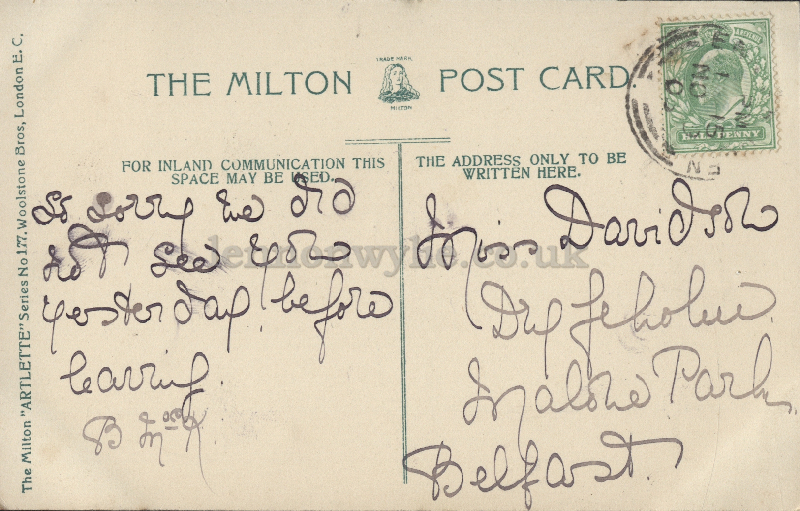 THE MILTON POST CARD
TRADE MARK
MILTON
FOR INLAND COMMUNICATION THIS
SPACE MAY BE USED.
THE ADDRESS ONLY TO BE
WRITTEN HERE.
So sorry we did
not see you
yesterday before
leaving.
Miss Davidson
Malone Park
Belfast.
The Milton "ARTLETTE" Series No 177. Woolstone Bros, London E.C.
lennonwylie.co.uk